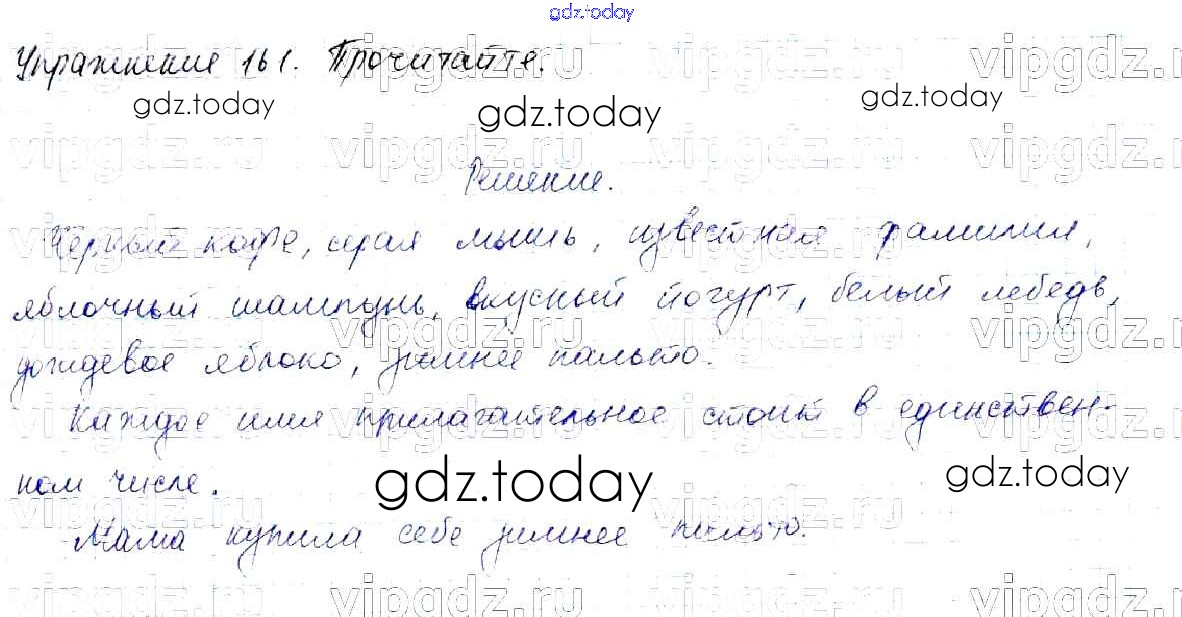 gdz.today
Упражнение 161. Прочитайте.
gdz.today gdz.today gdz.today
vipgdz.ru vipgdz.ru vipgdz.ru
Решение.
Чёрный кофе, серая мышь, известная фамилия,
яблочный шампунь, вкусный йогурт, белый лебедь,
дождевое яблоко, зимнее пальто.
Каждое имя прилагательное стоит в единствен-
ном числе.
gdz.today gdz.today
Мама купила себе зимнее пальто.
vipgdz.ru vipgdz.ru